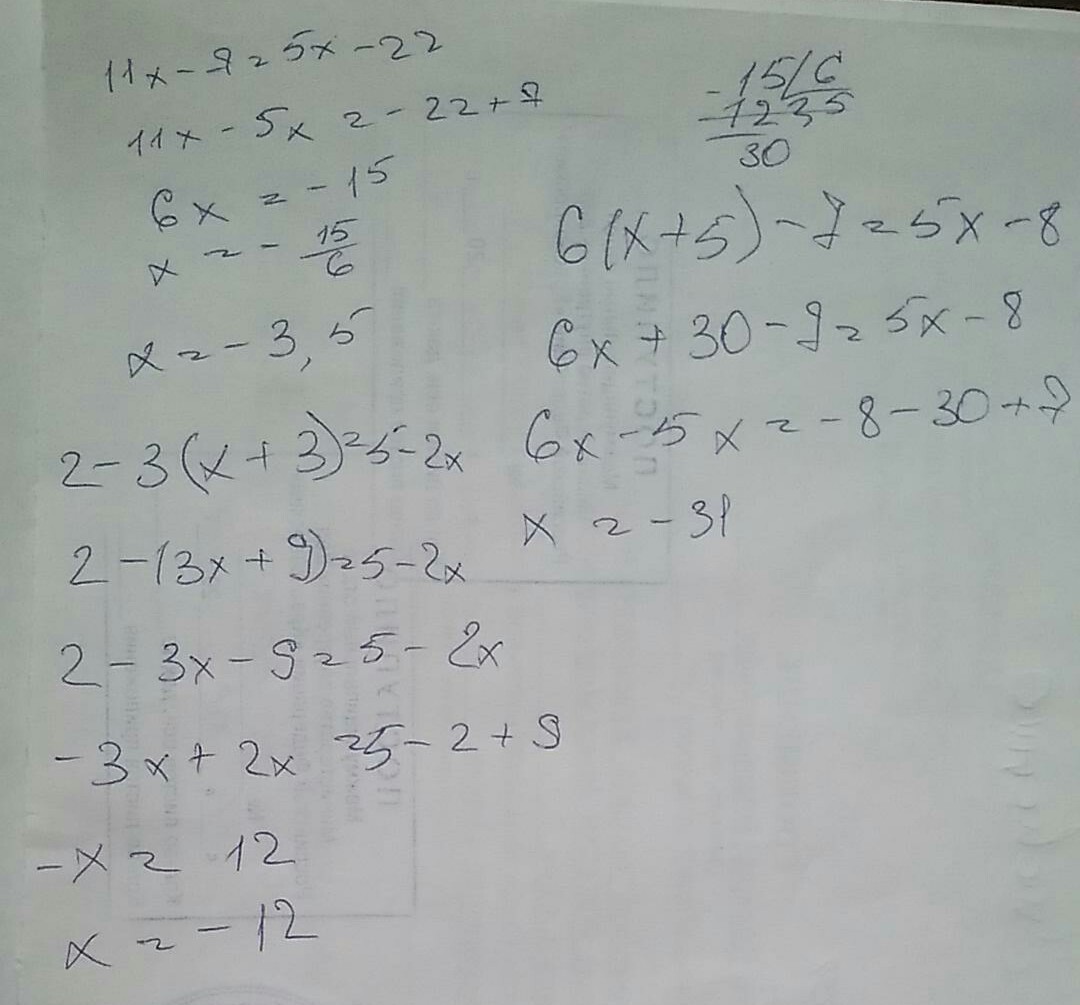 11x - 7 = 5x - 22
11x - 5x = - 22 + 7
6x = - 15
x = - 15/6
x = - 3,5
2 - 3(x + 3) = 5 - 2x
2 - (3x + 9) = 5 - 2x
2 - 3x - 9 = 5 - 2x
- 3x + 2x = 5 - 2 + 9
- x = 12
x = - 12
- 15 / 6
12 35
30
6(x + 5) - 7 = 5x - 8
6x + 30 - 7 = 5x - 8
6x - 5x = - 8 - 30 + 7
x = - 31